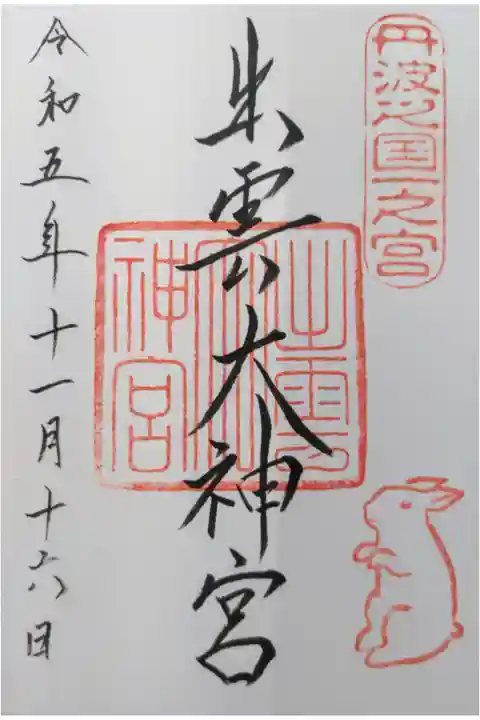 丹波之国一之宮
出雲大神宮
出雲
大
神宮
令和五年十一月十六日